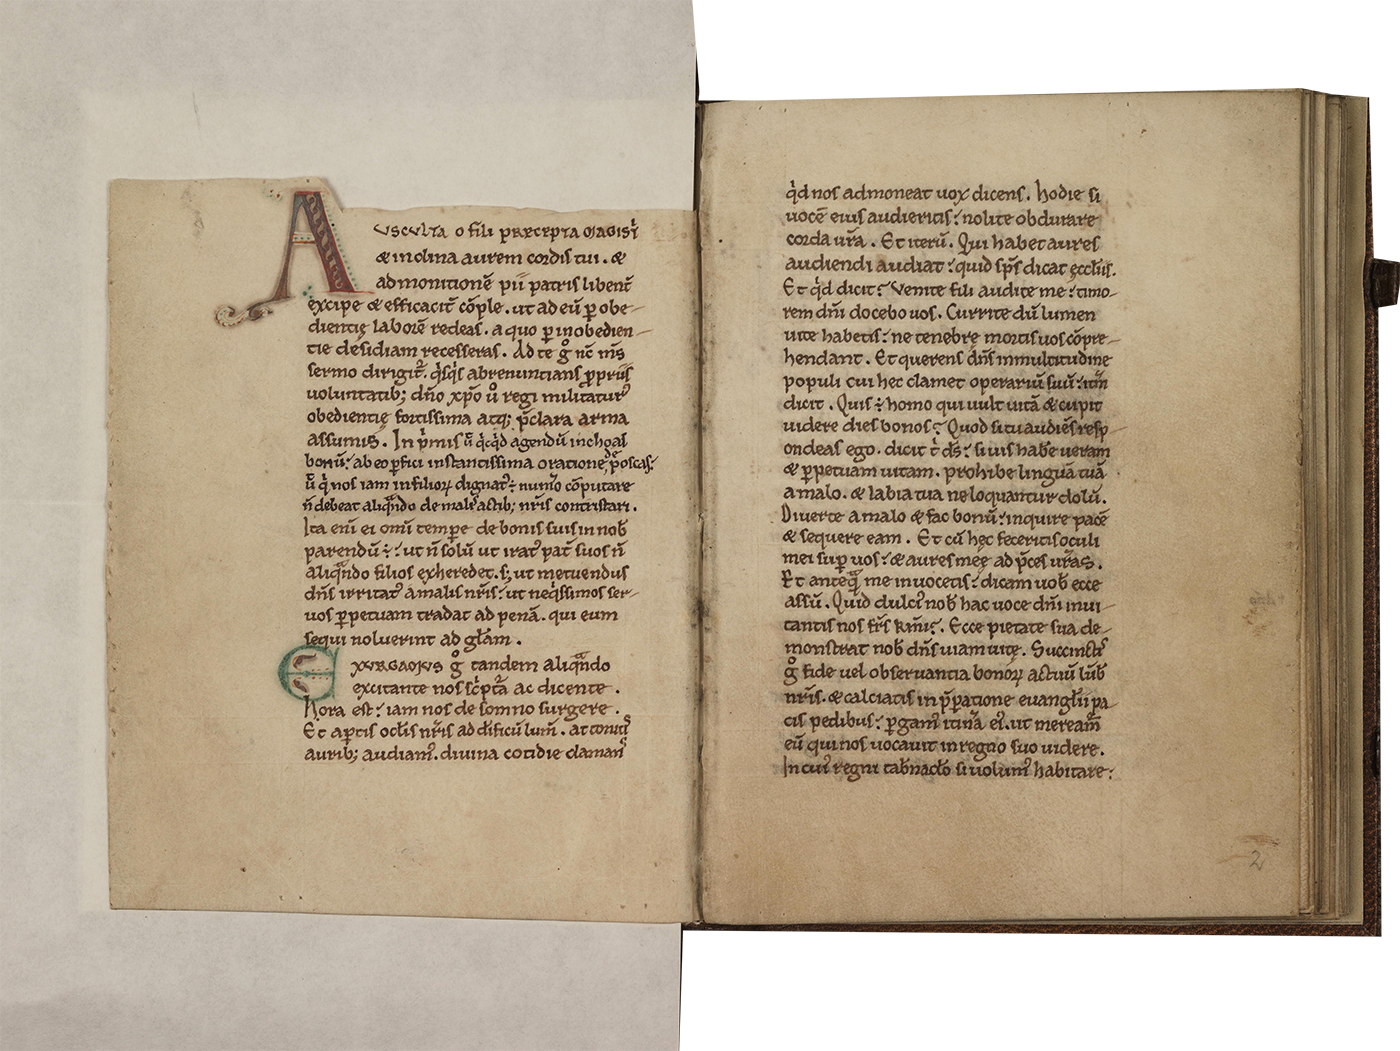 AUSCULTA o fili p̄RECEPTA MAGISTͥ
& inclina aurem cordis tui . &
admonitionē pii patris libent̄
excipe & efficacit̄ cōple . ut ad eū ꝑ obe-
dientię laborē redeas . a quo ꝑ inobedien-
tie desidiam recesseras . Ad te gͦ nc̄ m̄s
sermo dirigit᷑ . qͥsqͥs abrenuntians ꝓpriis
voluntatib; dn̄o xp̄o uͦ regi militaturꝰ
obedientię fortissima atq; p̄clara arma
assumis . In pͥmis ut̄ qͥcqͥd agendū inchoas
bonū : ab eo ꝑfici instantissima oratione deposcas :
ut̄ qͥ nos iam in filioꝝ dignatꝰ ÷ numͦo cōputare
n̄ debeat aliqͣndo de malis actib; nr̄is contristari .
Ita eni̅ ei omi̅ tempore de bonis suis in nob̄
parendū ÷ : ut n̄ solū ut iratꝰ pat̄ suos n̄
aliqͣndo filios exheredet . s; ut metuendus
dn̄s irritatꝰ a malis nr̄is : ut neqͥssimos ser-
vos ꝑpetuam tradat ad penā . qui eum
sequi noluerint ad gl̄am .
EXURGAMUS gͦ tandem aliqͣndo
excitante nos scͥptͣa ac dicente .
Hora est : iam nos de somno surgere .
Et aꝑtis ocl̄is nr̄is ad dificū lum̄ . attonitis
aurib; audiamꝰ . divina cotidie clamans
qͥd nos admoneat uox dicens . Hodie si
uocē eius audieritis : nolite obdurare
corda ur̄a . Et iterū . Qui habet aures
audiendi audiat : quid sp̄s dicat ęccl̄iis .
Et qͥd dicit : Venite fili audite me : timo-
rem dn̄i docebo uos . Currite dū lumen
uite habetis : ne tenebrę mortis uos cōpre-
hendant . Et querens dn̄s in multitudine
populi cui hec clamat operariū suū : itm̄
dicit . Quis ÷ homo qui uult uitā & cupit
uidere dies bonos ? Quod si tu audiēs resp-
ondeas ego . dicit tͥ ds̄ : si uis habe᷑ ueram
& ꝑpetuam uitam . prohibe linguā tuā
a malo . & labia tua ne loquantur dolū .
Diuerte a malo & fac bonū : inquire pacē
& sequere eam . Et cū hęc feceritis oculi
mei suꝑ uos : & aures meę ad p̄ces ur̄as .
Et anteqͣ me inuocetis : dicam uob̄ ecce
assū . Quid dulciꝰ nob̄ hac uoce dn̄i inui-
tantis nos fr̄s kmi̅ : Ecce pietate sua de-
monstrat nob̄ dn̄s uiam uitę . Succinctis
gͦ fide uel obseruantia bonoꝝ actuū lūb̄
nr̄is . & calciatis in p̄paratione euangl̄ii pa-
cis pedibus : ꝑgamꝰ itinͣa eiꝰ . ut mereamͬ
eū qui nos uocauit in regno suo uidere .
In cuiꝰ regni tab̄nacl̄o si uolumꝰ habitare :
2